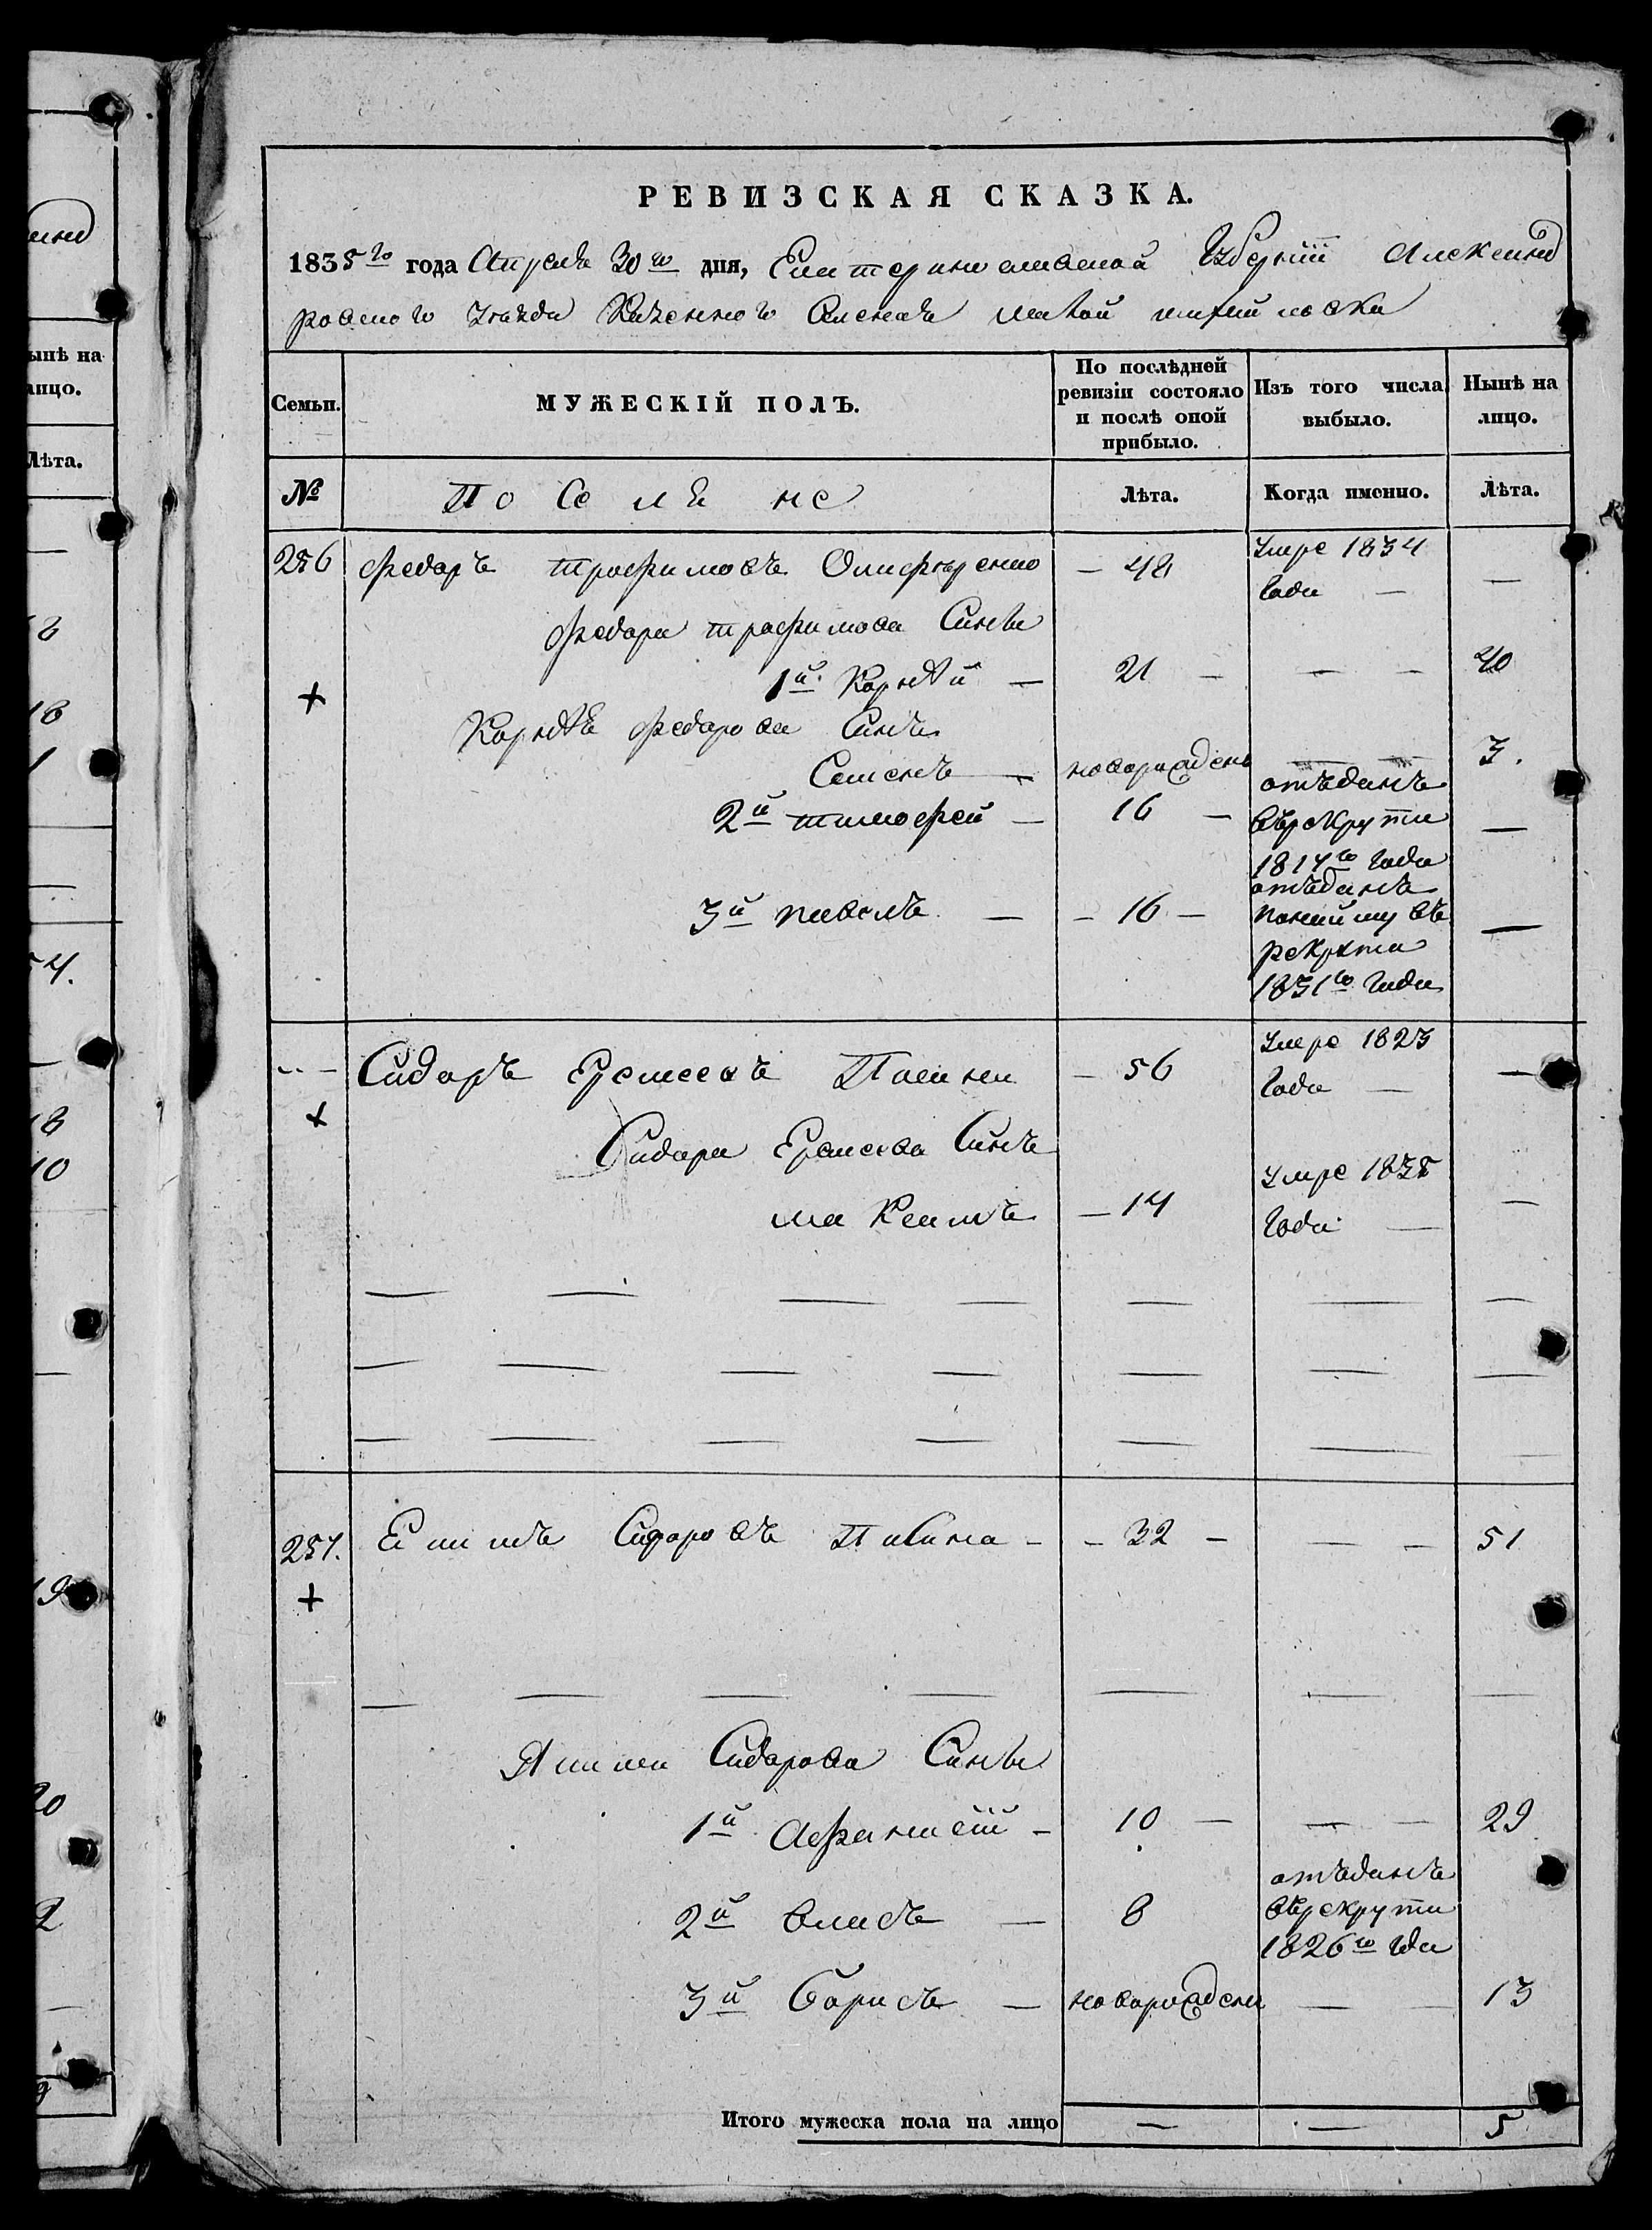 РЕВИЗСКАЯ СКАЗКА.
1835го года Апреля 30го дня, Екатеринославской Губернии Александ
ровского Уезда Казенного Селения малой михайловки
Семьи. МУЖЕСКІЙ ПОЛЪ. По послѣдней ревизіи состояло и послѣ оной прибыло. Изъ того числа выбыло. Нынѣ на лицо.
№ Поселяне Лѣта. Когда именно. Лѣта.
256 Федоръ трофимовъ Олифѣренко — 48 Умре 1834 Года —
Федора трофимова Сыны
1й Корнѣй — 21 — — — 40
Корнѣя Федорова Сынъ
Семенъ — новорожденъ — — 3.
2й тимофей — 16 — отъданъ върекруты 1817го Года —
3й павелъ — — 16 — отъданъ понайму въ рекруты 1831го Года —
Сидоръ Еремеевъ — 56 Умре 1823 Года —
Сидора Еремеева Сынъ
максимъ — 14 Умре 1835 Года —
257. Сидоровъ — — 32 — — — 51
Сидорова Сыны
1й Афанасій — 10 — — — 29
2й власъ — 8 отъданъ върекруты 1826го Года
3й борисъ — новорожденъ — — 13
Итого мужеска пола на лицо — — 5
ынѣ на
лицо.
Лѣта.